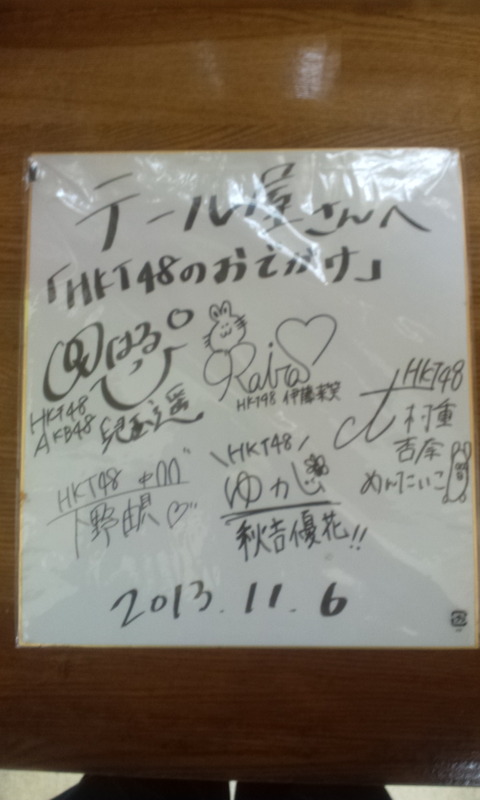 テール屋さんへ
「HKT48のおでかけ」
はるっぴ
HKT48
AKB48 兒玉遥
Raira
HKT48 伊藤来笑
HKT48
村重
杏奈
めんたいこ
HKT48
下野由貴
\HKT48/
ゆかじ
秋吉優花!!
2013.11.6